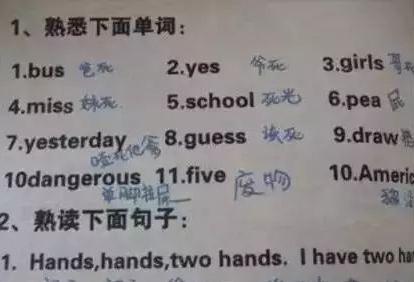 1、熟悉下面单词：
1.bus 爸死 2.yes 爷死 3.girls 哥死
4.miss 妹死 5.school 死光 6.pea 屁
7.yesterday 8.guess 该死 9.draw
10dangerous 单脚拉屎 11.five 废物 10.Americ
2、熟读下面句子：
1. Hands,hands,two hands. I have two han